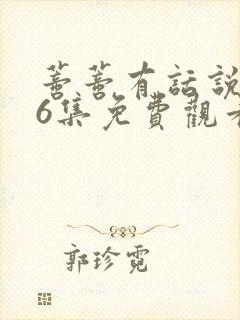 蔷蔷有話說
6集免費觀看
郭珍霓